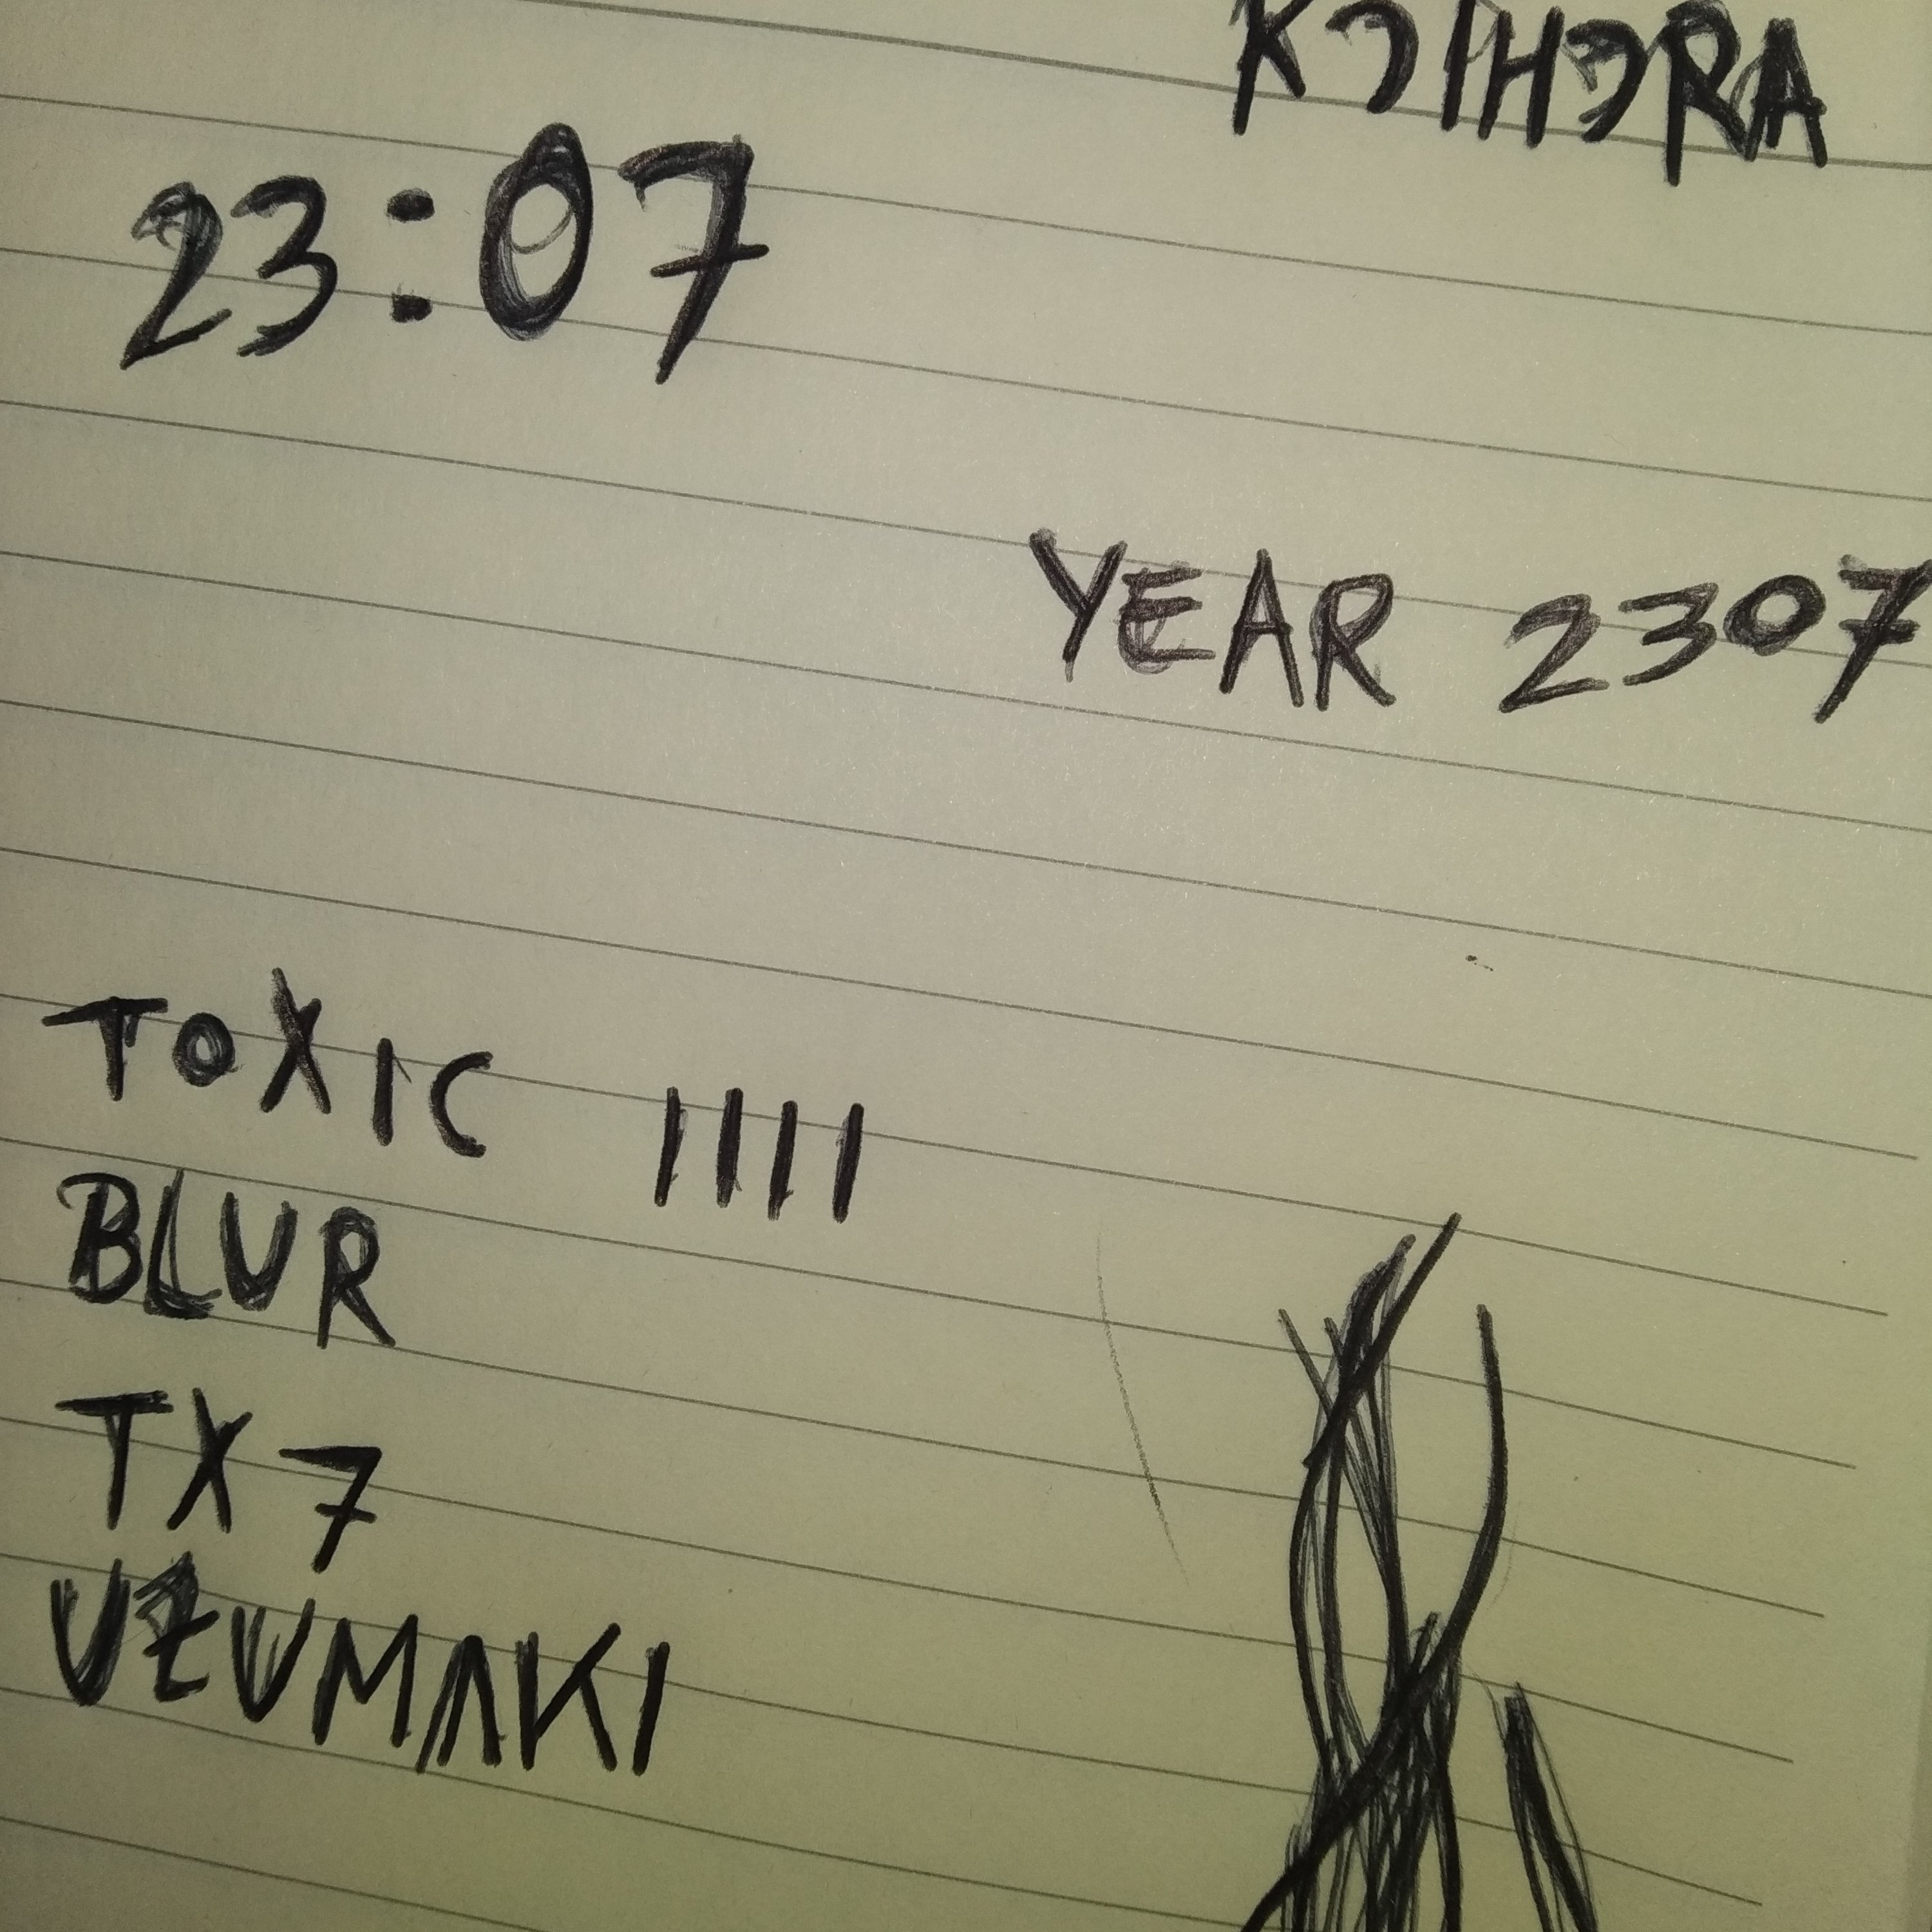 23:07
YEAR 2307
TOXIC IIII
BLUR
TX7
UZUMAKI